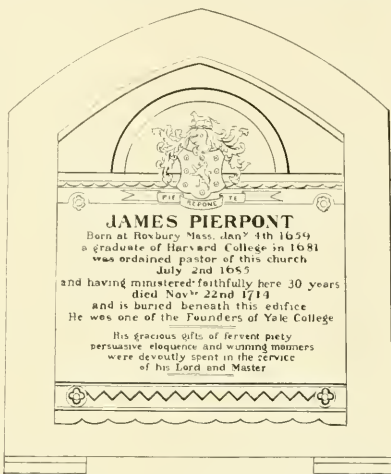 PIE REPONE TE
JAMES PIERPONT
Born at Roxbury Mass. Jan.y 4th 1659
a graduate of Harvard College in 1681
was ordained pastor of this church
July 2nd 1685
and having ministered faithfully here 30 years
died Nov.br 22nd 1714
and is buried beneath this edifice
He was one of the Founders of Yale College
His gracious gifts of fervent piety
persuasive eloquence and winning manners
were devoutly spent in the service
of his Lord and Master